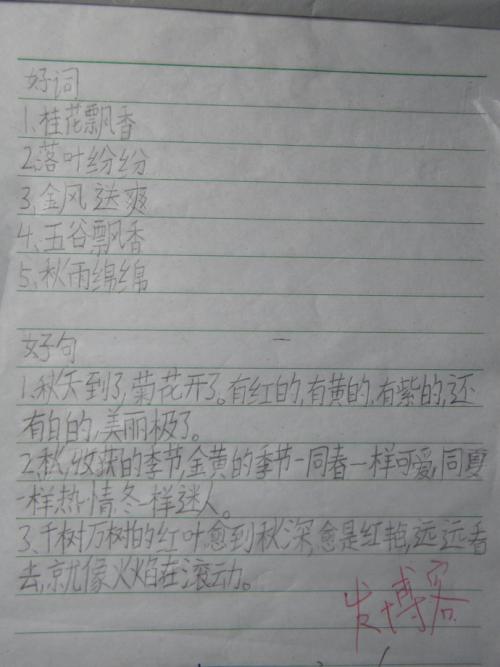 好词
1、桂花飘香
2、落叶纷纷
3、金风送爽
4、五谷飘香
5、秋雨绵绵
好句
1、秋天到了,菊花开了。有红的,有黄的,有紫的,还
有白的,美丽极了。
2、秋,收获的季节,金黄的季节-同春一样可爱,同夏
一样热情,冬一样迷人。
3、千树万树的红叶愈到秋深,愈是红艳,远远看
去,就像火焰在滚动。
发博客